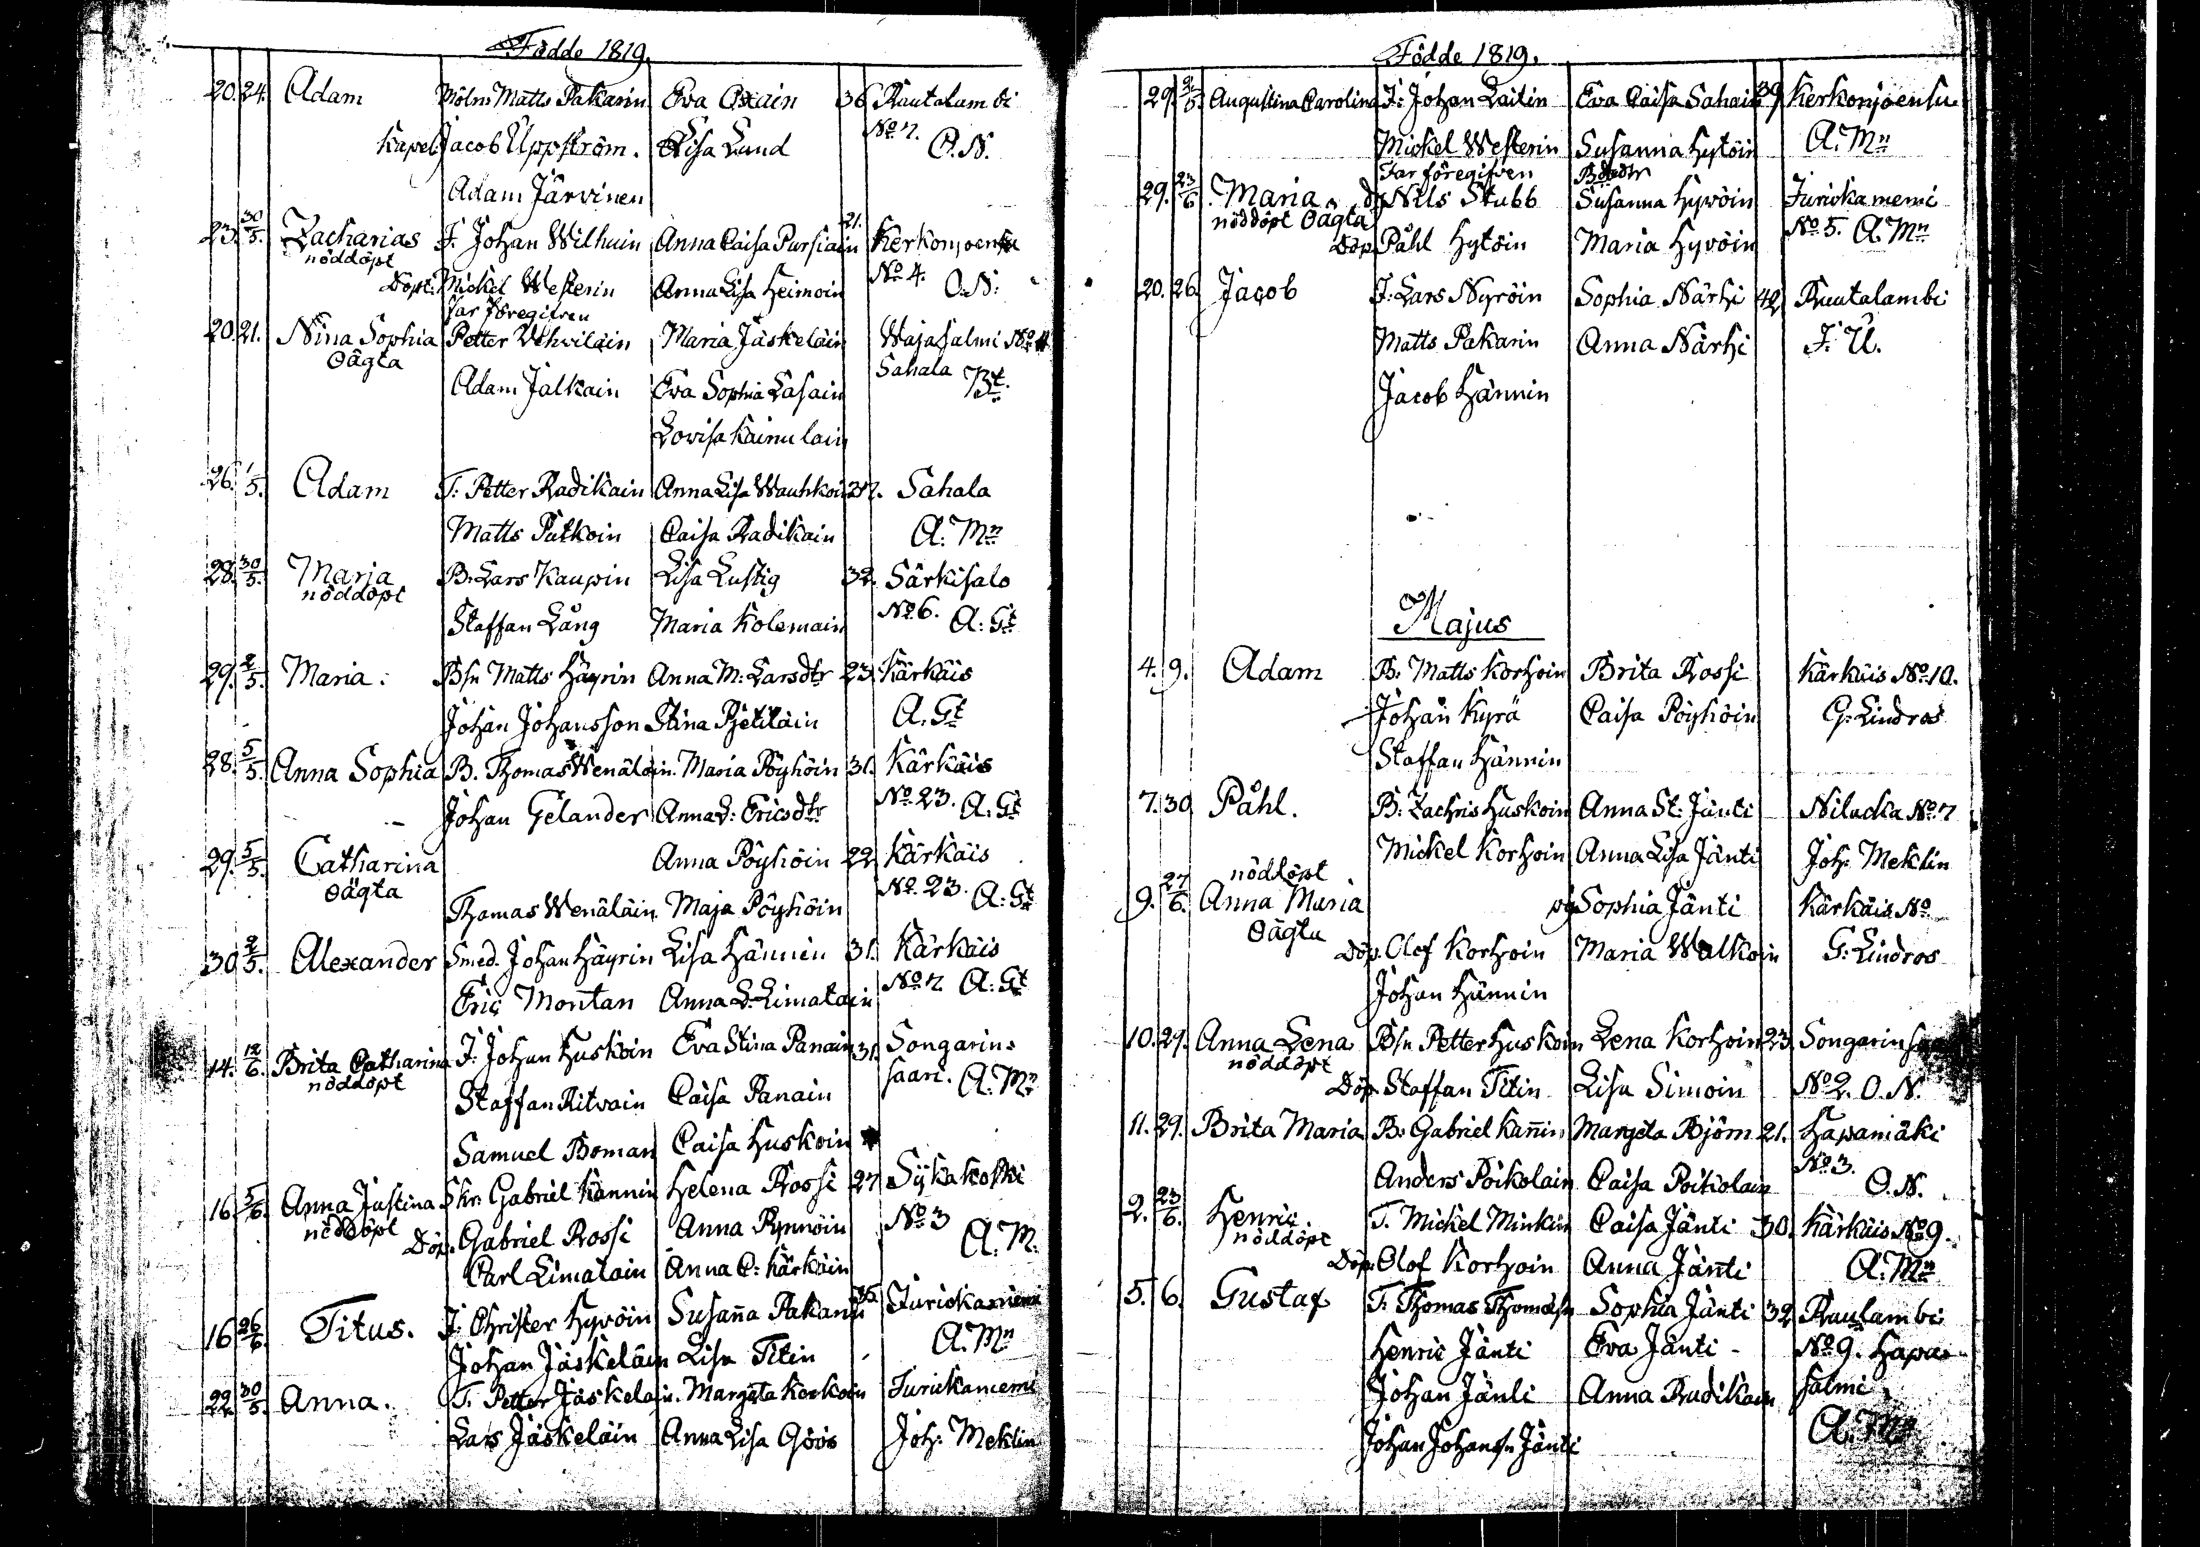 Födde 1819.
20. 24. Adam Mölns Matts Pakarin Eva Oxain 36 Rautalambi
Kapel. Jacob Uppström. Lisa Lund No 7. O. N.
Adam Järvinen
23. 30/5. Zacharias J. Johan Wilhuin Anna Caisa Pursiain 21. Kerkonjoensu
nöddöpt Döpt: Mickel Westerin Anna Lisa Heimoin No 4. O. N.
Far föregifven
20. 21. Nina Sophia Petter Vihviläin Maria Jäskeläin Wajasalmi No 4
Oägta Adam Jalkain Eva Sophia Lasain Sahala Bt.
Lovisa Kainulain
26. 1/5. Adam T. Petter Radikain Anna Lisa Wauhkoin 27. Sahala
Matts Putkoin Caisa Radikain A. Mn
28. 30/5. Maria B. Lars Kaupin Lisa Lustig 32. Särkisalo
nöddöpt Staffan Lång Maria Kolemain No 6. A: Gt
29. 2/5. Maria. Bsn Matts Häyrin Anna M: Larsdtr 23. Kärkäis
Johan Johansson Stina Pjetiläin A. Gt
28. 5/5. Anna Sophia B. Thomas Wenäläin. Maria Pöyhöin 31. Kärkäis
Johan Gelander Anna L: Ericsdtr No 23. A: Gt
29. 5/5. Catharina Anna Pöyhöin 22 Kärkäis
Oägta Thomas Wenäläin Maja Pöyhöin No 23. A: Gt
30. 9/5. Alexander Smed. Johan Häyrin Lisa Hännin 31. Kärkäis
Eric Montan Anna L. Limatain No 7 A: Gt
14. 12/6. Brita Catharina J. Johan Huskoin Eva Stina Panain 31. Songarin-
nöddöpt Staffan Ritvain Caisa Panain saari. A. Mn
Samuel Boman Caisa Huskoin
16. 5/6. Anna Justina Skr. Gabriel Kännin Helena Rossi 27 Sykäkoski
nöddöpt Döp. Gabriel Rossi Anna Rynnöin No 3 A. M.
Carl Limatain Anna C: Kärkäin
16 26/6. Titus. J. Christer Hyvöin Susaña Pakarin 35 Jurickaniemi
Johan Jäskeläin Lisa Titin A. Mn
22. 30/5. Anna. T. Petter Jäskeläin. Margeta Korhoin Jurickaniemi
Lars Jäskeläin Anna Lisa Göös Joh: Meklin
Födde 1819.
29. 2/5. Augustina Carolina J: Johan Laitin Eva Caisa Sahain 39 Kerkonjoensu
Mickel Westerin Susanna Hytöin A. Mn
Far föregifven Bdedtr
29. 23/6. Maria dr Nils Stubb Susanna Hyvöin Jurickaniemi
nöddöpt Oägta Döp. Påhl Hytöin Maria Hyvöin No 5. A. Mn
20. 26. Jacob J. Lars Nyröin Sophia Närhi 42 Rautalambi
Matts Pakarin Anna Närhi J. U.
Jacob Hännin
Majus
4. 9. Adam B. Matts Korhoin Brita Rossi Kärkäis No 10.
Johan Kyrä Caisa Pöyhöin G. Lindros
Staffan Hännin
7. 30 Påhl. B: Zachris Huskoin Anna St: Jänti Nilacka No 7
Mickel Korhoin Anna Lisa Jänti Joh: Meklin
nöddöpt
9. 27/6. Anna Maria pig Sophia Jänti Kärkäis No
Oägta Döp. Olof Korhoin Maria Walkoin G: Lindros
Johan Hännin
10. 29. Anna Lena Bsn Petter Huskoin Lena Korhoin 23. Songarinsaa
nöddöpt Döp. Staffan Titin Lisa Simoin No 2. O. N.
11. 29. Brita Maria B. Gabriel Kañin Margeta Björn 21. Hapamäki
Anders Poikolain Caisa Poikolain No 3. O. N.
2. 23/6. Henric T. Mickel Minkin Caisa Jänti 30. Kärkäis No 9.
nöddöpt Döp. Olof Korhoin Anna Jänti A. Mn
5. 6. Gustaf T. Thomas Thomassn Sophia Jänti 32 Rautambi
Henric Jänti Eva Jänti No 9. Hapa-
Johan Jänti Anna Radikain salmi
Johan Johansn Jänti A. Mn